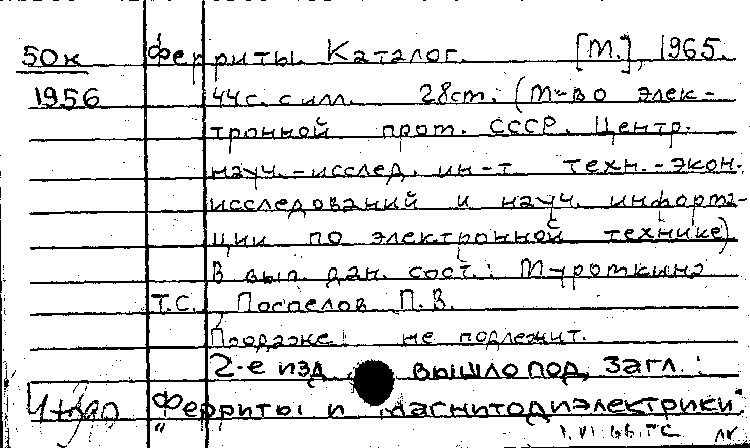 50к Ферриты. Каталог. [М.], 1965.
1956 44с. с илл. 28см. (М-во элек-
тронной пром. СССР. Центр.
науч.-исслед. ин-т техн.-экон.
исследований и науч. информа-
ции по электронной технике)
В вып. дан. сост.: Муроткина
Т.С., Поспелов П.В.
Продаже не подлежит.
2-е изд. вышло под загл.:
"Ферриты и магнитодиэлектрики".
1.VI.66 ТС ЛК